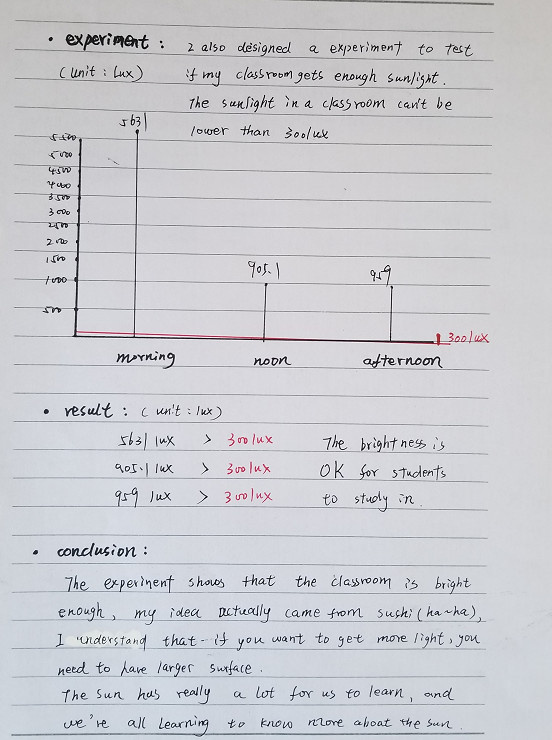 • experiment : I also designed a experiment to test
(Unit : Lux) if my classroom gets enough sunlight.
The sunlight in a classroom can't be
lower than 300lux
5631
5500
5000
4500
4000
3500
3000
2500
2000
1500
1000
500
905.1
959
300lux
morning noon afternoon
• result : ( unit : lux )
5631 lux > 300lux The brightness is
905.1 lux > 300lux OK for students
959 lux > 300lux to study in.
• conclusion :
The experiment shows that the classroom is bright
enough, my idea actually came from sushi (ha~ha),
I understand that - if you want to get more light, you
need to have larger surface.
The sun has really a lot for us to learn, and
we're all learning to know more about the sun.